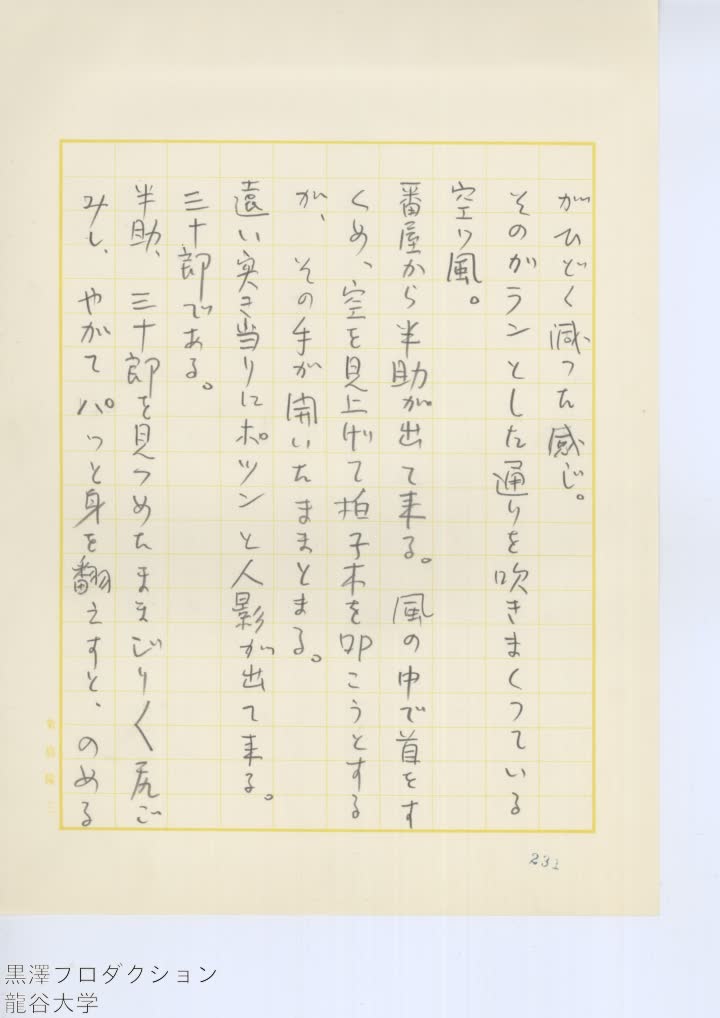 がひどく減った感じ。
そのガランとした通りを吹きまくっている
空ッ風。
番屋から半助が出て来る。風の中で首をす
くめ、空を見上げて拍子木を叩こうとする
が、その手が開いたままとまる。
遠い突き当りにポツンと人影が出て来る。
三十郎である。
半助、三十郎を見つめたままじり〱尻ご
みし、やがてパッと身を翻えすと、のめる
231
黒澤プロダクション
龍谷大学